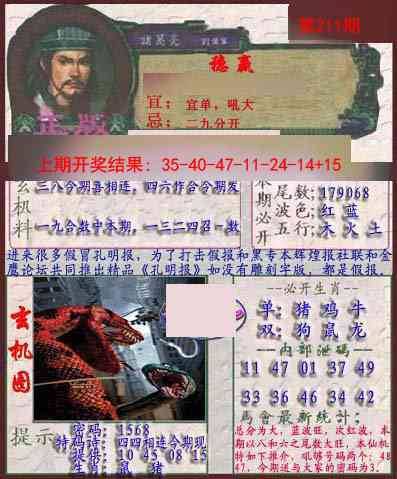 第211期
諸葛亮
劉伯溫
稳赢
宜：宜单，吼大
忌：二九分开
正版
上期开奖结果：35-40-47-11-24-14+15
玄机料
三八今期喜相连，四六作合今期发
一九合数中本期，一三二四召一数
本期必开
尾数:179068
波色:红 蓝
五行:木 火 土
进来很多假冒孔明报，为了打击假报和黑专本辉煌报社联和金
鹰论坛共同推出精品《孔明报》如没有雕刻字版，都是假报。
玄机图
--必开生肖--
单:猪 鸡 牛
双:狗 鼠 龙
--内部泄码--
11 47 01 37 49
33 36 46 34 42
馬會最新統計:
总分为大，蓝波大旺，次红波，本
期以八和六之尾数大旺，本仙机
特如下推介，吼够号码两个：48
47，今期送与大家的密码为3.
提示
密码:1568
特码诗:四四相连今期现
提供:10 45 08 15
生肖:鼠 猪